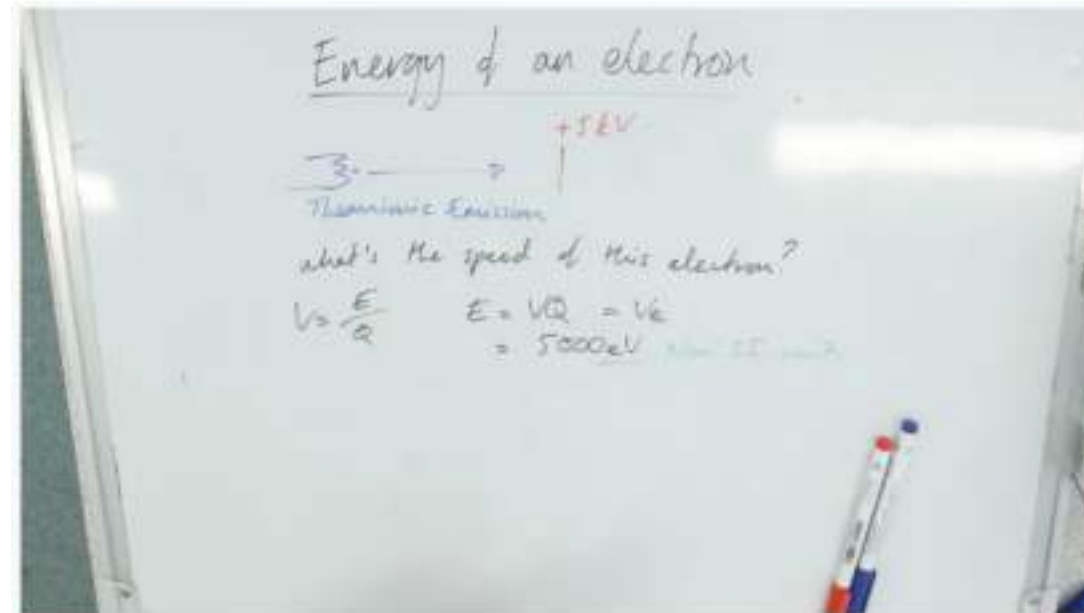 Energy of an electron
+5kV
Thermionic Emission
what's the speed of this electron?
V = E/Q E = VQ = Ve
= 5000eV Non SI unit